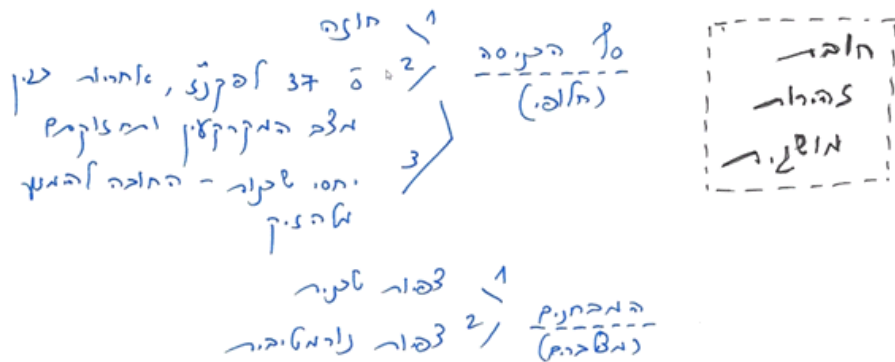 חובת
זהירות
מושגית
סף הכניסה
(חלופי)
1 חוזה
2 ס' 37 לפקנ"ז, אחריות בגין
מצב המקרקעין ותחזוקתם
3 יחסי שכנות - החובה להמנע
המבחנים
(מצטברים)
1 צפיות טכנית
2 צפיות נורמטיבית